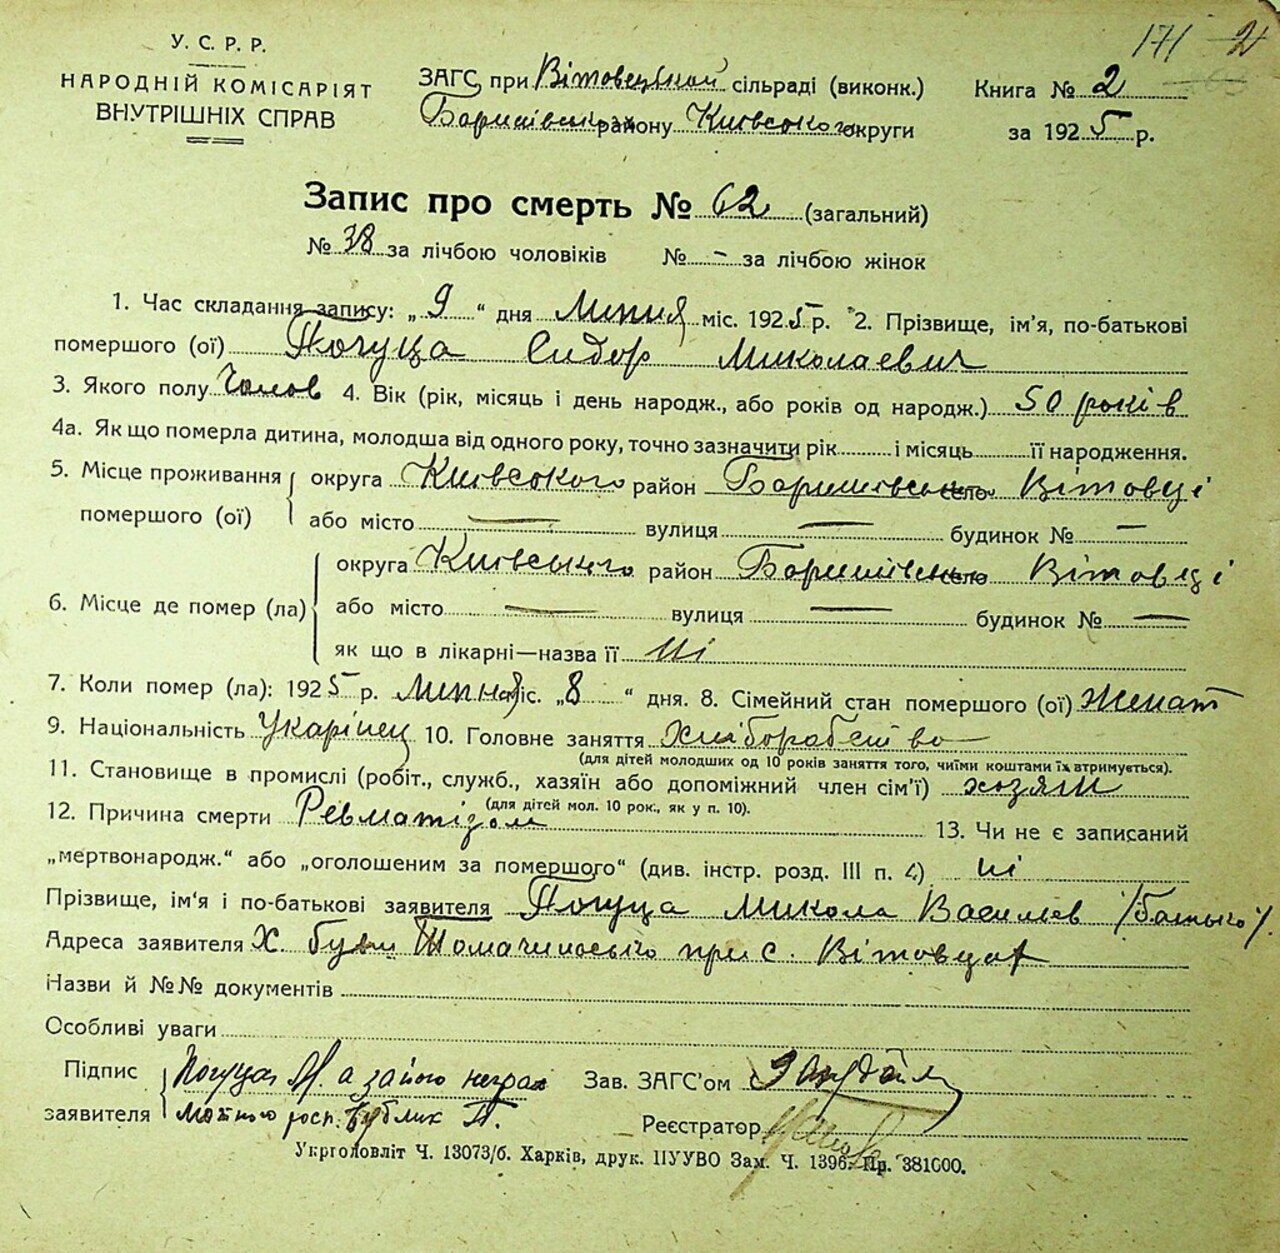 171 2
У. С. Р. Р.
НАРОДНІЙ КОМІСАРІЯТ
ВНУТРІШНІХ СПРАВ
ЗАГС при Вітовецькой сільраді (виконк.)
Баришівськ району Київського округи
Книга № 2
за 1925 р.
Запис про смерть № 62 (загальний)
№ 38 за лічбою чоловіків № – за лічбою жінок
1. Час складання запису: „ 9 “ дня Липня міс. 1925 р. 2. Прізвище, ім’я, по-батькові
помершого (ої) Погуца Сидор Миколаевич
3. Якого полу Чолов 4. Вік (рік, місяць і день народж., або років од народж.) 50 років
4а. Як що померла дитина, молодша від одного року, точно зазначити рік і місяць її народження.
5. Місце проживання помершого (ої)
округа Київського район Баришівськ село Вітовці
або місто — вулиця — будинок № —
6. Місце де помер (ла)
округа Київського район Баришівськ село Вітовці
або місто — вулиця — будинок № —
як що в лікарні—назва її ні
7. Коли помер (ла): 1925 р. Липня міс. „ 8 “ дня. 8. Сімейний стан помершого (ої) Женат
9. Національність Укарінец 10. Головне заняття Хліборобство
(для дітей молодших од 10 років заняття того, чиїми коштами їх втримується).
11. Становище в промислі (робіт., служб., хазяїн або допоміжний член сім’ї) хозяин
(для дітей мол. 10 рок., як у п. 10).
12. Причина смерти Ревматізом 13. Чи не є записаний
„мертвонародж.“ або „оголошеним за помершого“ (див. інстр. розд. III п. 4) ні
Прізвище, ім‘я і по-батькові заявителя Погуца Микола Васильев /батько/.
Адреса заявителя Х. був. при с. Вітовцах
Назви й №№ документів
Особливі уваги
Підпис заявителя
Погуца М. а за його неграмотного росп. Бублик П.
Зав. ЗАГС’ом
Реєстратор
Укрголовліт Ч. 13073/б. Харків, друк. ПУУВО Зам. Ч. 1396. Пр. 381000.